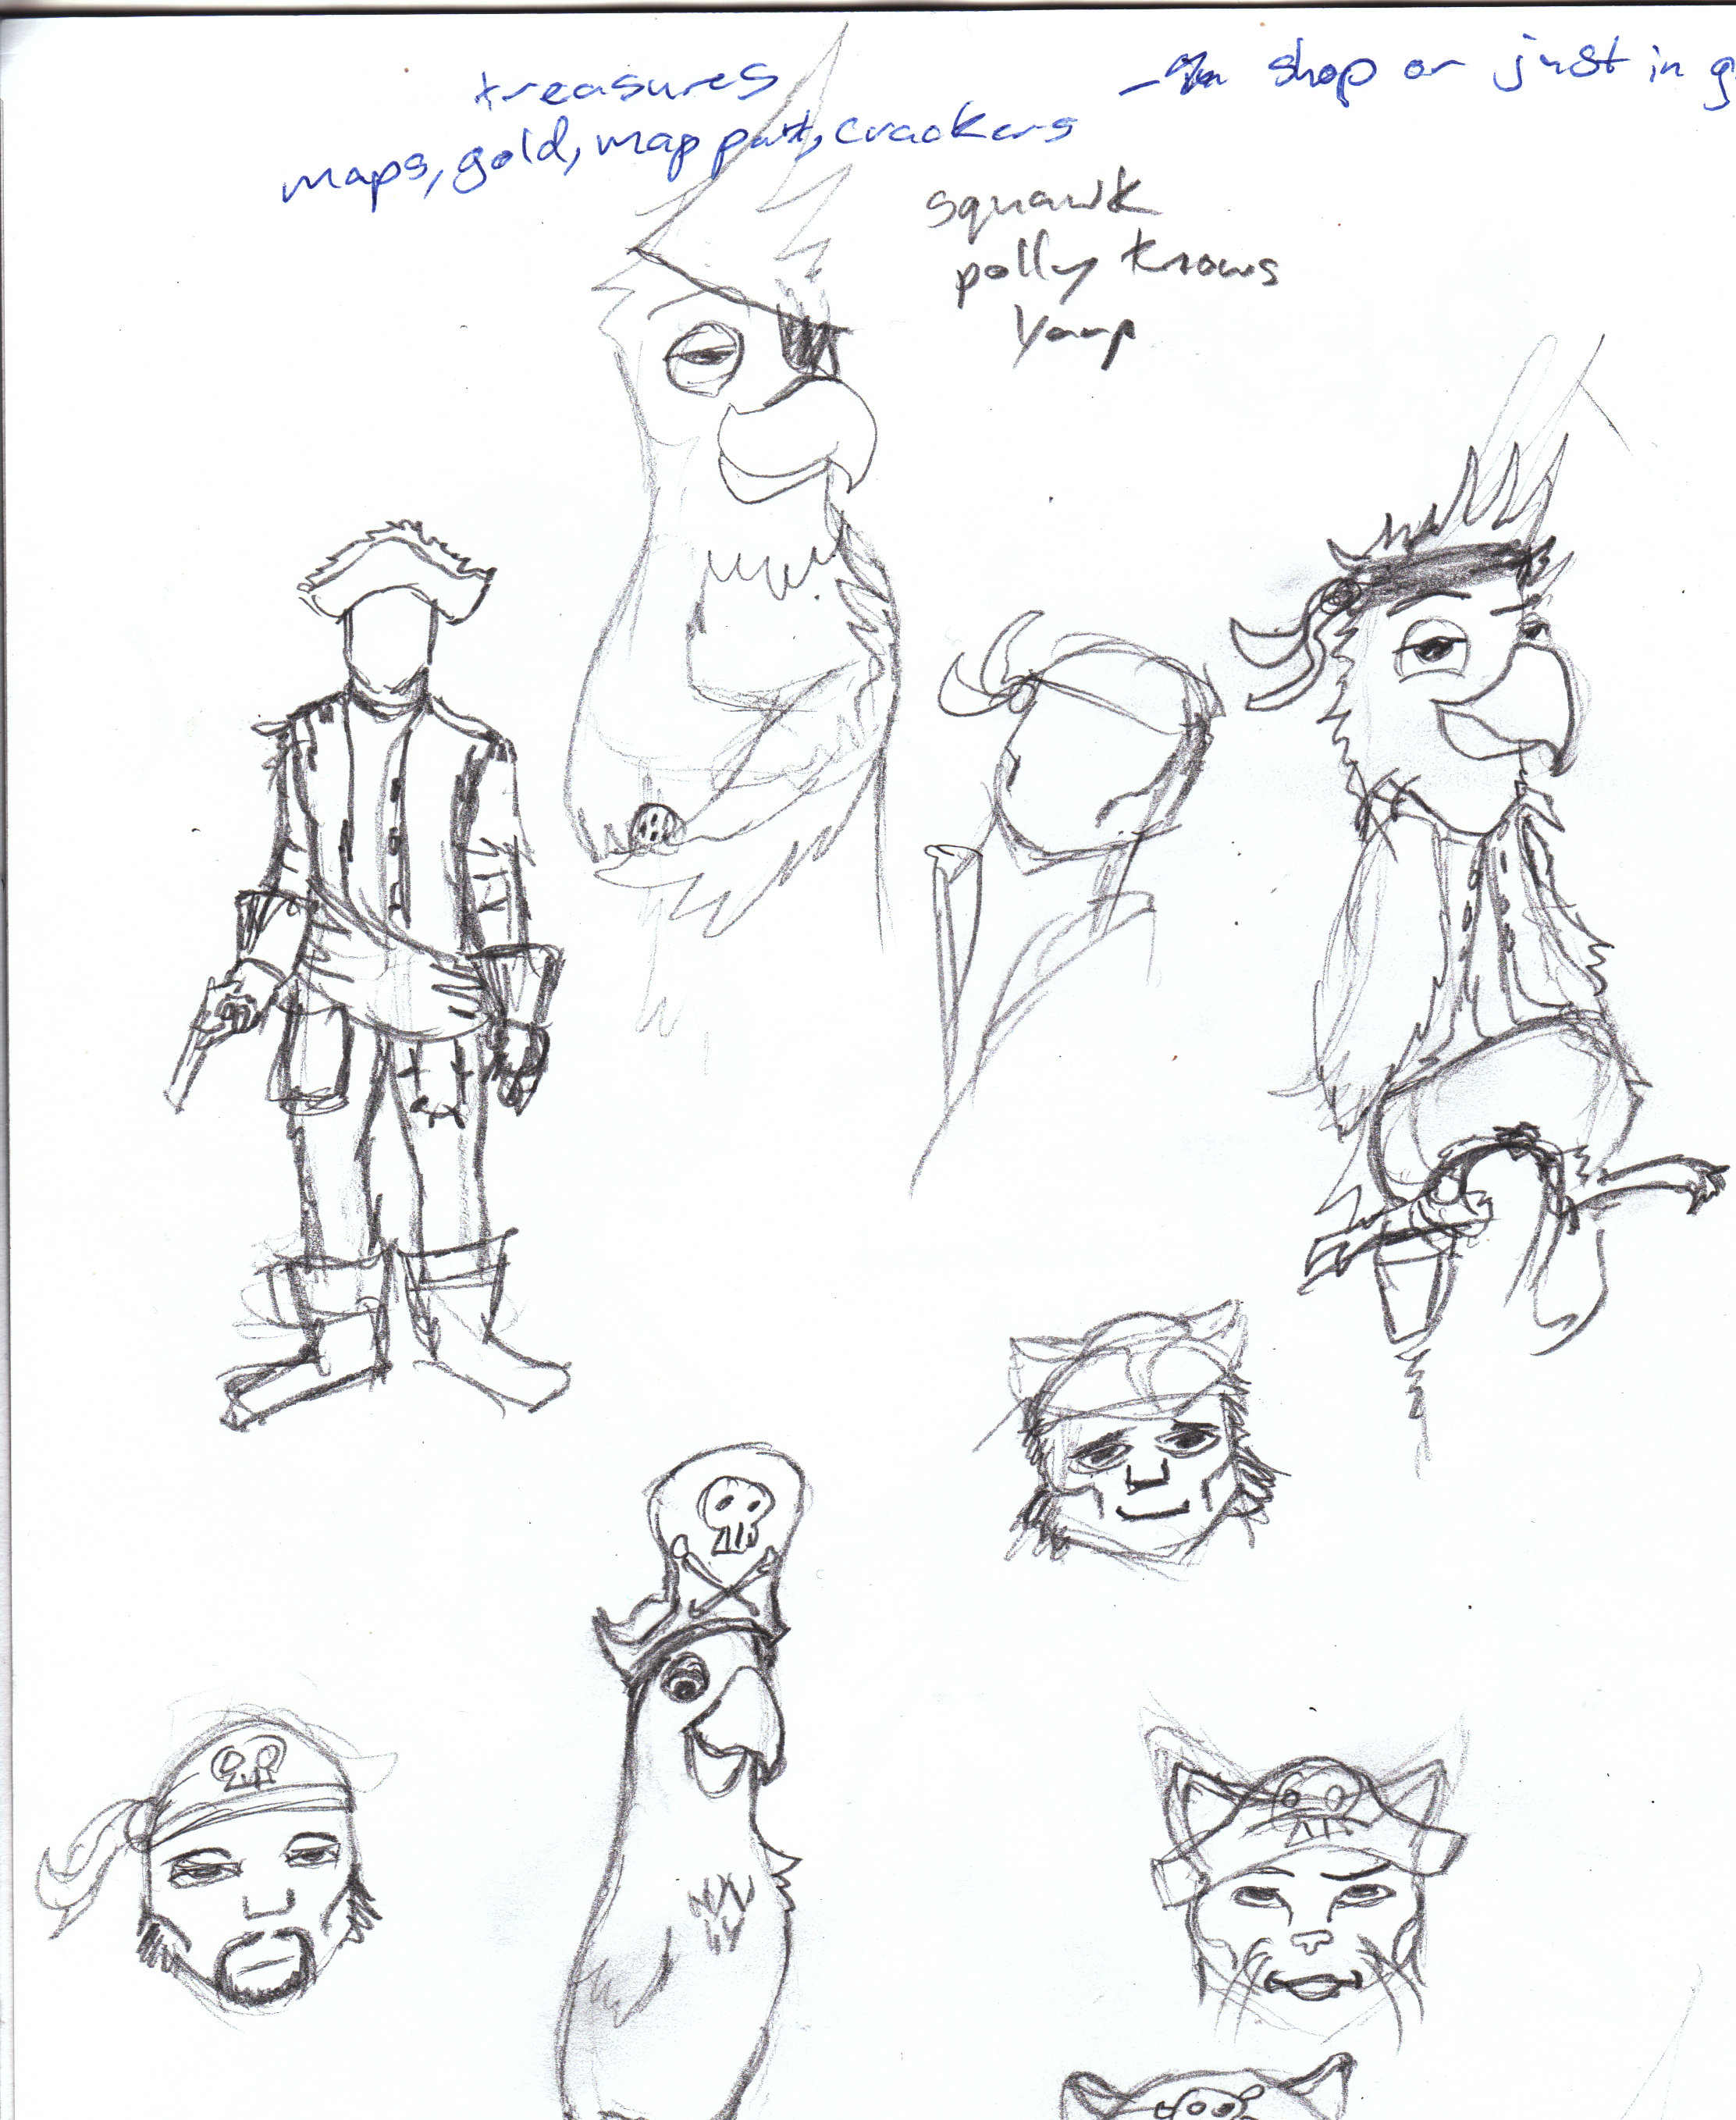 treasures
maps, gold, map part, crackers
shop or just in
squawk
polly knows